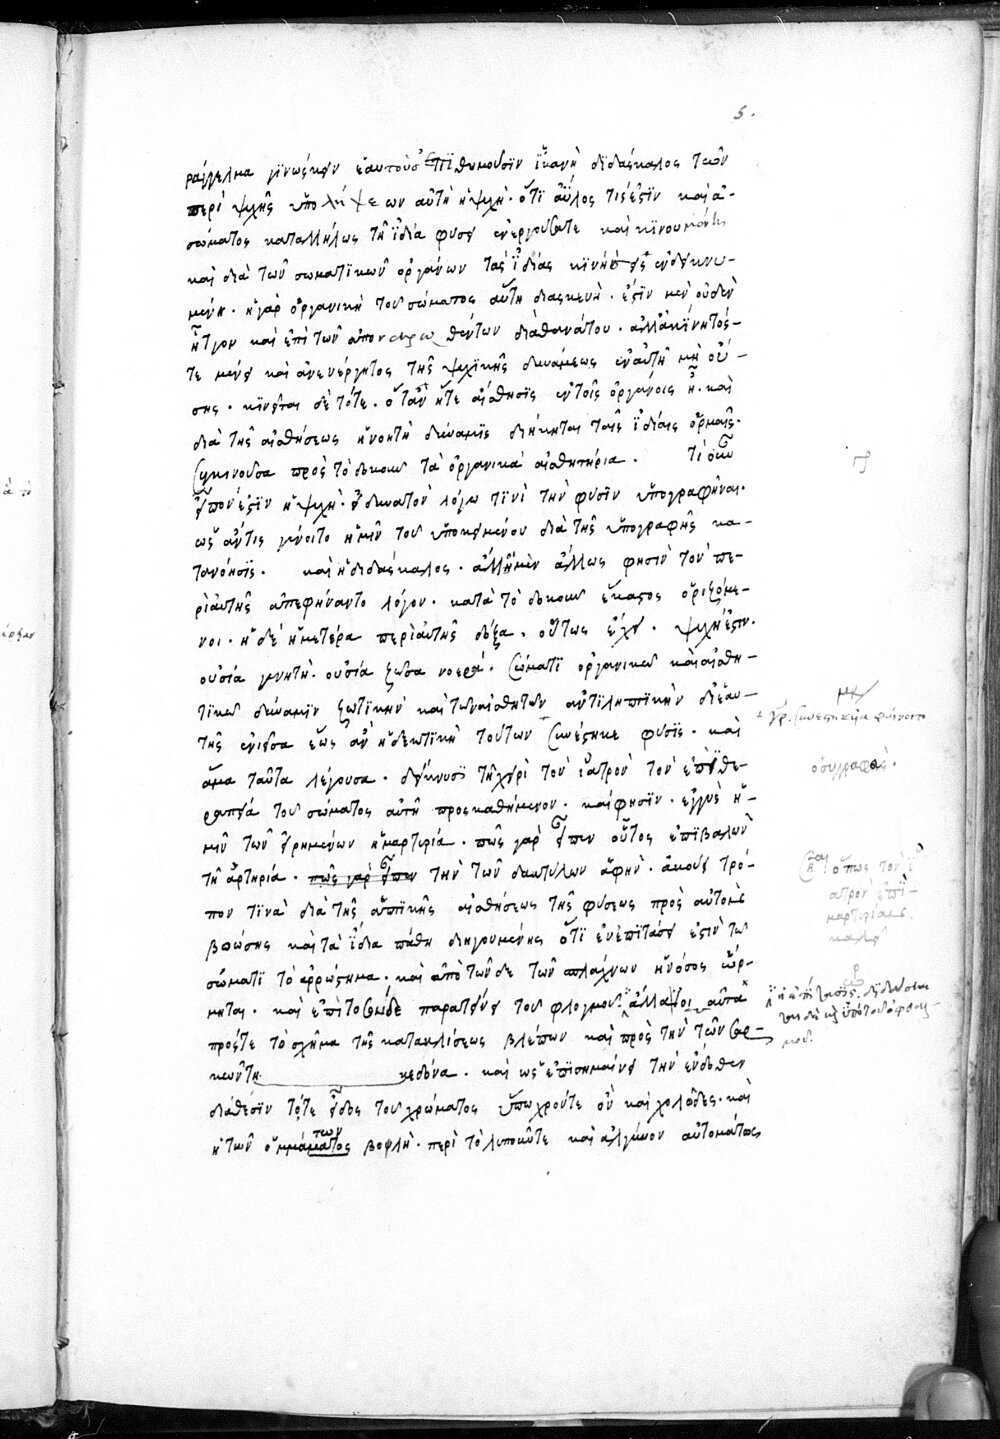 5.
ράγγελμα γινώσκειν ἑαυτοὺς ἐπιθυμοῦσιν ἱκανὴ διδάσκαλος τῶν
περὶ ψυχῆς ὑπολήψεων αὐτὴ ἡ ψυχὴ· ὅτι ἄϋλος τίς ἐστιν καὶ ἀ-
σώματος καταλλήλως τῇ ἰδίᾳ φύσει ἐνεργοῦσά τε καὶ κινουμένη
καὶ διὰ τῶν σωματικῶν ὀργάνων τὰς ἰδίας κινήσεις ἐνδεικνυ-
μένη· ἡ γὰρ ὀργανικὴ τοῦ σώματος αὕτη διασκευὴ· ἔστιν μὲν οὐδὲν
ἧττον καὶ ἐπὶ τῶν ἀπονεκρωθέντων διὰ θανάτου· ἀλλ' ἀκίνητός-
τε μένει καὶ ἀνενέργητος τῆς ψυχικῆς δυνάμεως ἐν αὐτῇ μὴ οὔ-
σης· κινεῖται δὲ τότε· ὅταν ἥτε αἴσθησις ἐν τοῖς ὀργάνοις ᾖ· καὶ
διὰ τῆς αἰσθήσεως ἡ νοητὴ δύναμις διήκηται ταῖς ἰδίαις ὁρμαῖς·
συγκινοῦσα πρὸς τὸ δοκοῦν τὰ ὀργανικὰ αἰσθητήρια· τί οὖν
εἶπον ἐστιν ἡ ψυχὴ· εἰ δυνατὸν λόγῳ τινὶ τὴν φύσιν ὑπογραφῆναι·
ὡς ἄν τις γένοιτο ἡμῖν τοῦ ὑποκειμένου διὰ τῆς ὑπογραφῆς κα-
τανόησις· καὶ ἡ διδάσκαλος· ἄλλοι μὲν ἄλλως φησὶν τὸν πε-
ρὶ αὐτῆς ἀπεφήναντο λόγον· κατὰ τὸ δοκοῦν ἕκαστος ὁριζόμε-
νοι· ἡ δὲ ἡμετέρα περὶ αὐτῆς δόξα· οὕτως ἔχει· ψυχή ἐστιν·
οὐσία γεννητὴ· οὐσία ζῶσα νοερά· σώματι ὀργανικῷ καὶ αἰσθη-
τικῷ δύναμιν ζωτικὴν καὶ τῶν αἰσθητῶν ἀντιληπτικὴν δι' ἑαυ-
τῆς ἐνιεῖσα ἕως ἂν ἡ δεκτικὴ τούτων συνέστηκε φύσις· καὶ
ἅμα ταῦτα λέγουσα· δείκνυσι τῇ χειρὶ τὸν ἰατρὸν τὸν ἐπὶ θε-
ραπείᾳ τοῦ σώματος αὐτῇ προσκαθήμενον· καί φησιν· ἐγγὺς ἡ-
μῖν τῶν εἰρημένων ἡ μαρτυρία· πῶς γὰρ εἶπεν οὗτος ἐπιβαλὼν
τῇ ἀρτηρίᾳ· πῶς γὰρ εἶπεν τὴν τῶν δακτύλων ἁφὴν· ἀκούει τρό-
πον τινὰ διὰ τῆς ἁπτικῆς αἰσθήσεως τῆς φύσεως πρὸς αὐτὸν
βοώσης καὶ τὰ ἴδια πάθη διηγουμένης ὅτι ἐν ἐπιτάσει ἐστὶν τῷ
σώματι τὸ ἀρρώστημα· καὶ ἀπὸ τῶνδε τῶν σπλάγχνων ἡ νόσος ὥρ-
μηται· καὶ ἐπὶ τοσόνδε παρατείνει τοῦ φλογμοῦ
πρός τε τὸ σχῆμα τῆς κατακλίσεως βλέπων καὶ πρὸς τὴν τῶν σαρ-
κῶν τη κεδόνα· καὶ ὡς ἐπισημαίνει τὴν ἔνδοθεν
διάθεσιν τότε εἶδος τοῦ χρώματος ὕπωχρόν τε ὂν καὶ χολῶδες· καὶ
ἡ τῶν ὀμμάματος των βοψλὴ· περὶ τὸ λυποῦν τε καὶ ἀλγῦνον αὐτομάτως
γρ. συνεστηκυῖα φαίνοιτο
ὁ συγγραφεὺς·
ὅπως τὸν ἰ
ατρὸν ἐπι-
μαρτυρίαν
καλεῖ